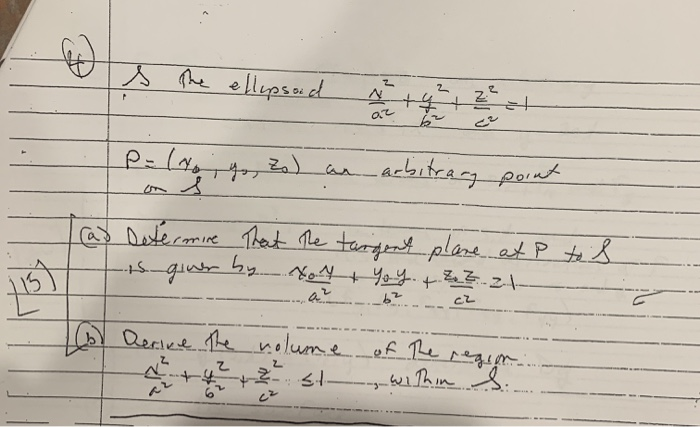 ④ S the ellipsoid x²/a² + y²/b² + z²/c² = 1
P = (x₀, y₀, z₀) an arbitrary point
on S
(a) Determine that the tangent plane at P to S
is given by x₀x/a² + y₀y/b² + z₀z/c² = 1
[15]
(b) Derive the volume of the region
x²/a² + y²/b² + z²/c² ≤ 1, within S.